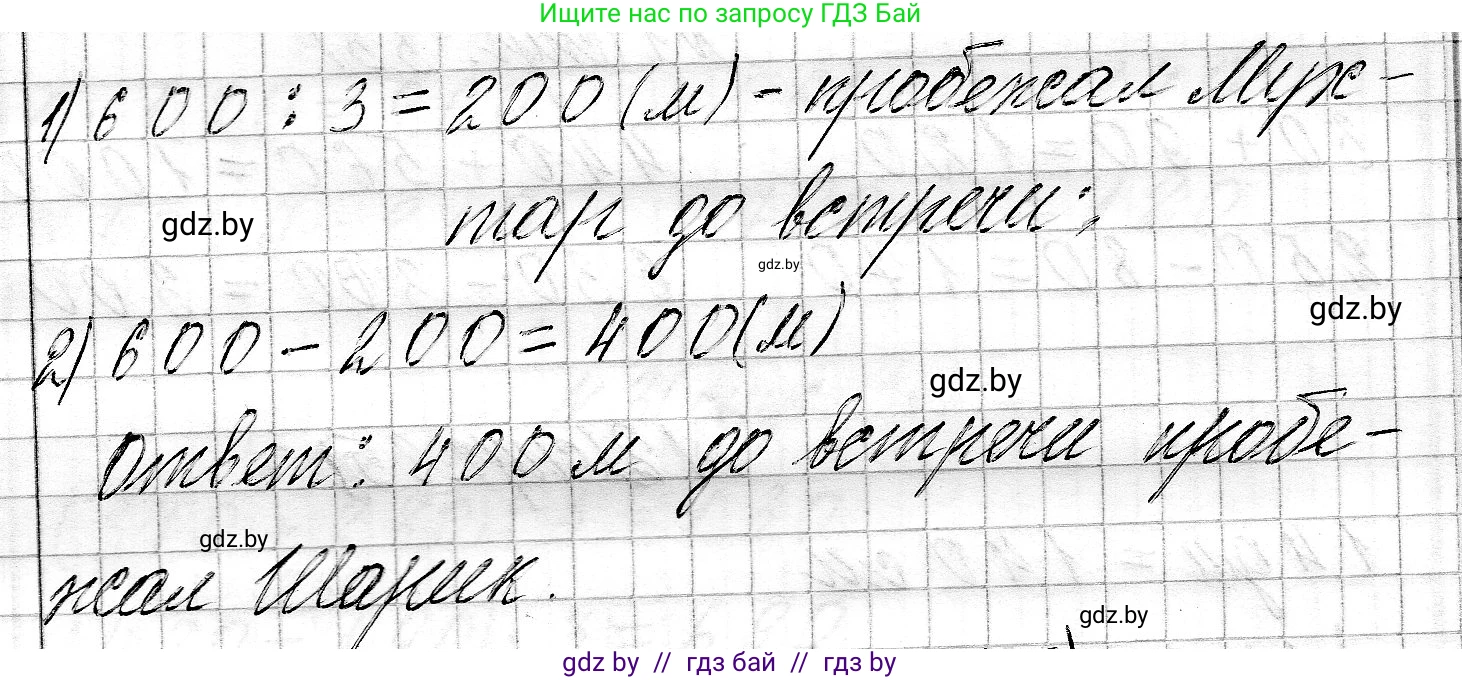 Ищите нас по запросу ГДЗ Бай
1) 600 : 3 = 200 (м) - пробежал Мух-
тар до встречи;
gdz.by
gdz.by
2) 600 - 200 = 400 (м)
gdz.by
gdz.by
Ответ: 400 м до встречи пробе-
жал Шарик.
gdz.by
gdz.by
gdz by // гдз бай // гдз by